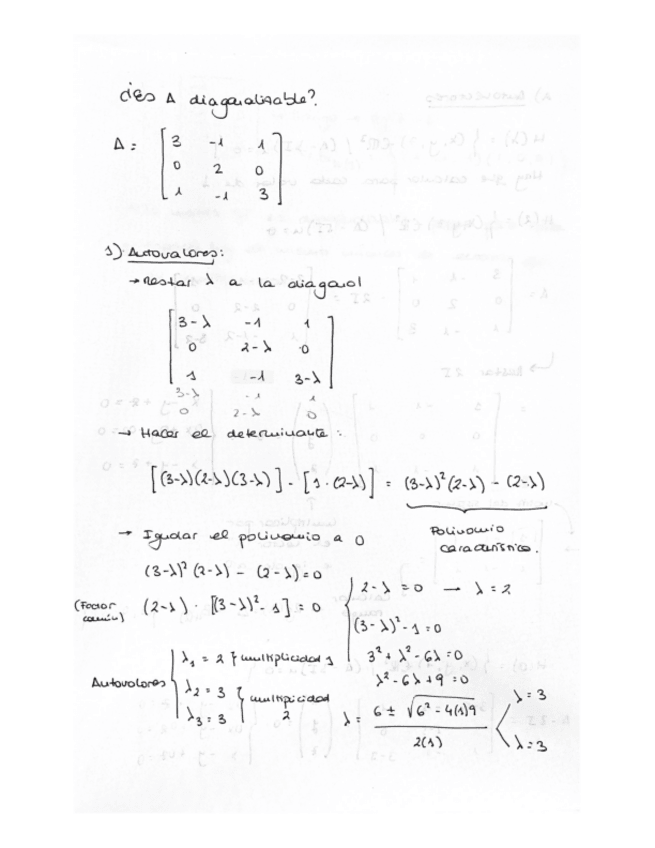 ¿Es A diagonalizable?
A = [ 3 -1 1
0 2 0
1 -1 3 ]
1) Autovalores:
→ Restar λ a la diagonal
[ 3-λ -1 1
0 2-λ 0
1 -1 3-λ ]
3-λ -1 1
0 2-λ 0
→ Hacer el determinante:
[(3-λ)(2-λ)(3-λ)] - [1·(2-λ)] = (3-λ)²(2-λ) - (2-λ)
Polinomio
característico.
→ Igualar el polinomio a 0
(3-λ)² (2-λ) - (2-λ) = 0
(Factor común) (2-λ) · [(3-λ)² - 1] = 0
2-λ = 0 → λ = 2
(3-λ)² - 1 = 0
3² + λ² - 6λ = 0
λ² - 6λ + 9 = 0
λ = 6 ± √6² - 4(1)9 / 2(1)
λ = 3
λ = 3
Autovalores
λ₁ = 2 } multiplicidad 1
λ₂ = 3
λ₃ = 3
} multipicidad 2